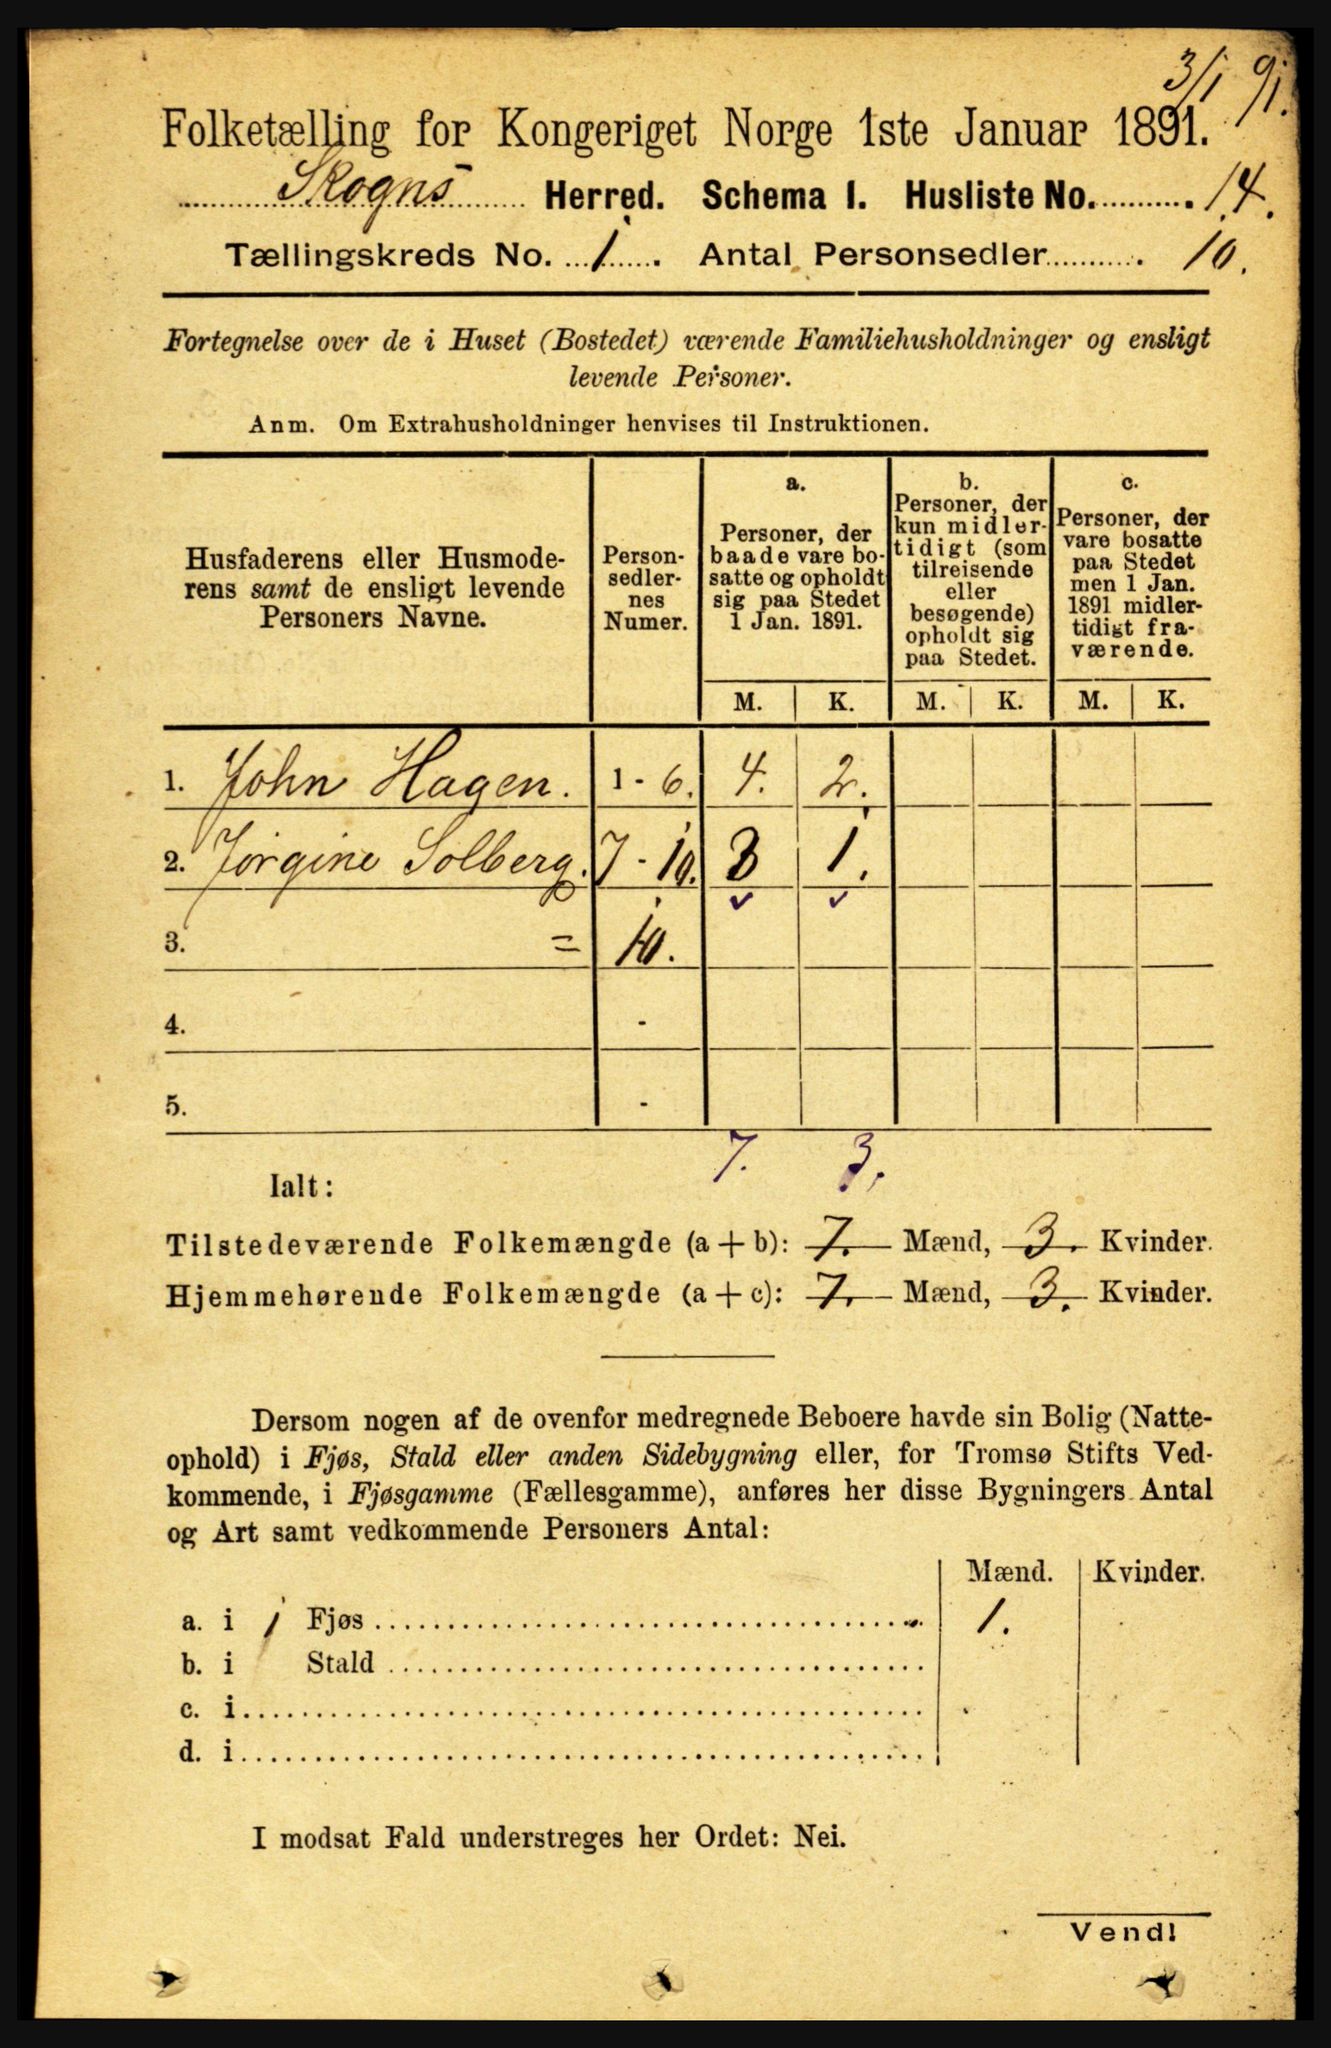 3/1 91.
Folketælling for Kongeriget Norge 1ste Januar 1891.
Skogns Herred. Schema I. Husliste No. 14.
Tællingskreds No. 1. Antal Personsedler 10.
Fortegnelse over de i Huset (Bostedet) værende Familiehusholdninger og ensligt
levende Personer.
Anm. Om Extrahusholdninger henvises til Instruktionen.
Husfaderens eller Husmode-
rens samt de ensligt levende
Personers Navne.
Person-
sedler-
nes
Numer.
a.
Personer, der
baade vare bo-
satte og opholdt
sig paa Stedet
1 Jan. 1891.
b.
Personer, der
kun midler-
tidigt (som
tilreisende
eller
besøgende)
opholdt sig
paa Stedet.
c.
Personer, der
vare bosatte
paa Stedet
men 1 Jan.
1891 midler-
tidigt fra-
værende.
M. K. M. K. M. K.
1. John Hagen. 1 - 6. 4. 2.
2. Jørgine Solberg. 7 - 10. 3 1.
3. = 10.
4. -
5. -
7. 3.
Ialt:
Tilstedeværende Folkemængde (a + b): 7. Mænd, 3. Kvinder.
Hjemmehørende Folkemængde (a + c): 7. Mænd, 3. Kvinder.
Dersom nogen af de ovenfor medregnede Beboere havde sin Bolig (Natte-
ophold) i Fjøs, Stald eller anden Sidebygning eller, for Tromsø Stifts Ved-
kommende, i Fjøsgamme (Fællesgamme), anføres her disse Bygningers Antal
og Art samt vedkommende Personers Antal:
Mænd. Kvinder.
a. i 1 Fjøs 1.
b. i Stald
c. i
d. i
I modsat Fald understreges her Ordet: Nei.
Vend!